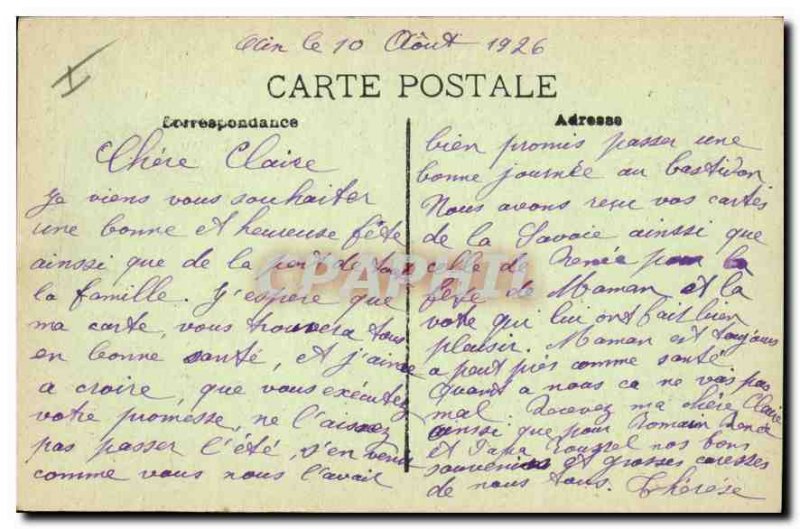 Aix le 10 Août 1926
CARTE POSTALE
Correspondance
Chère Claire
Je viens vous souhaiter
une bonne et heureuse fête
ainssi que de la part de tous
la famille. J'espère que
ma carte, vous trouvera tous
en bonne santé, et j'aime
a croire, que vous exécutez
votre promesse, ne l'aissez
pas passer l'été, s'en venir
comme vous nous l'avait
Adresse
bien promis passer une
bonne journée au bastidon
Nous avons reçu vos cartes
de la Savoie ainssi que
celle de Renée pour la
fête de Maman et la
votre qui lui ont fait bien
plaisir. Maman est toujours
a peut près comme santé
Quant a nous ca ne vas pas
mal. Recevez ma chère Claire
ainssi que pour Romain Renée
et Papa Roussel nos bons
souvenirs et grosses caresses
de nous tous. Thérése
CPAPHIL